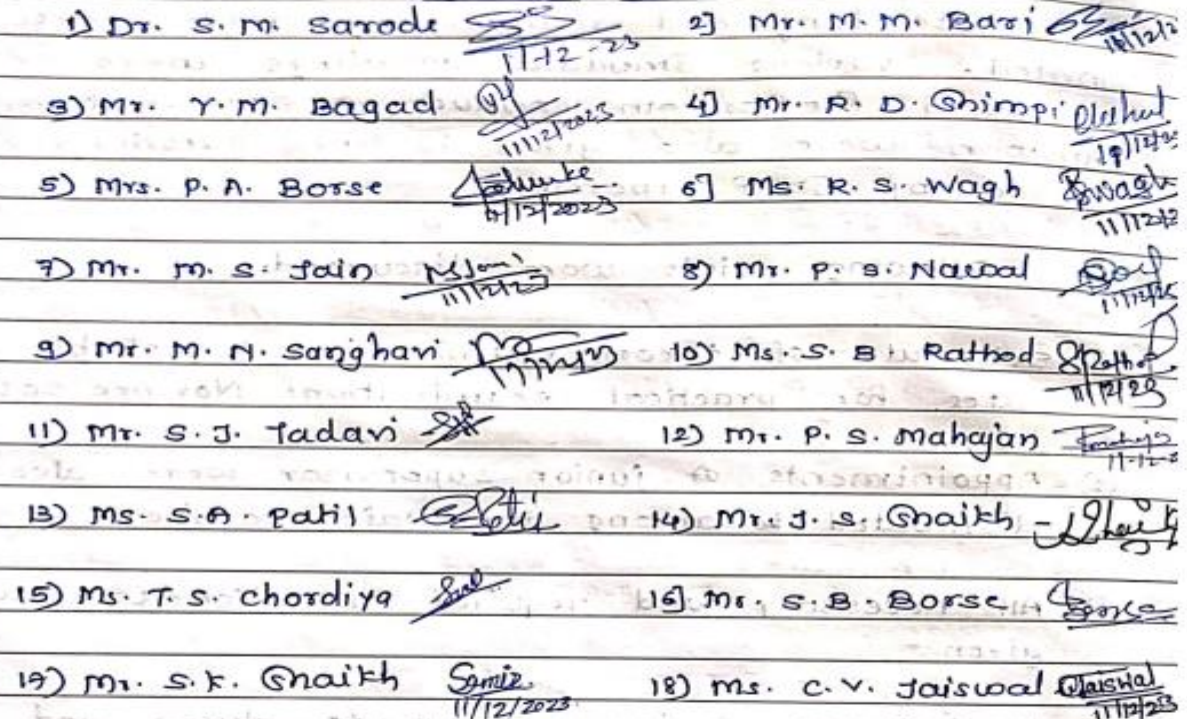 1) Dr. S. M. Sarode 11-12-23 2] Mr. M. M. Bari
3) Mr. Y. M. Bagad 11/12/2023 4] Mr. R. D. Shimpi
5) Mrs. P. A. Borse 11/12/2023 6] Ms. R. S. Wagh
7) Mr. M. S. Jain 11/12/23 8) Mr. P. S. Nawal
9) Mr. M. N. Sanghavi 10) Ms. S. B. Rathod 11/12/23
11) Mr. S. J. Tadavi 12) Mr. P. S. Mahajan
13) Ms. S. A. Patil 14) Mr. J. S. Shaikh Shaikh
15) Ms. T. S. Chordiya 16] Mr. S. B. Borse
17) Mr. S. K. Shaikh Samir 11/12/2023 18) Ms. C. V. Jaiswal Jaiswal 11/12/23